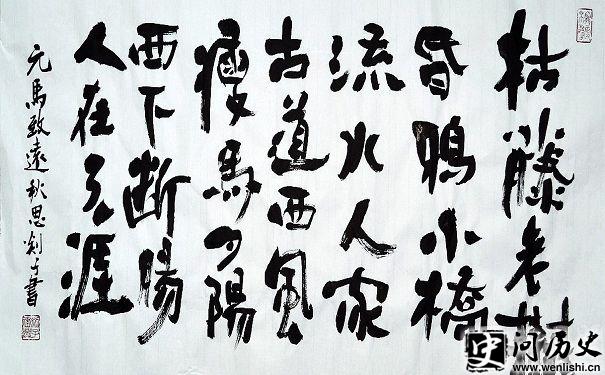 枯藤老樹
昏鴉小橋
流水人家
古道西風
瘦馬夕陽
西下断腸
人在天涯
元馬致遠秋思書
史 问历史
www.wenlishi.cn